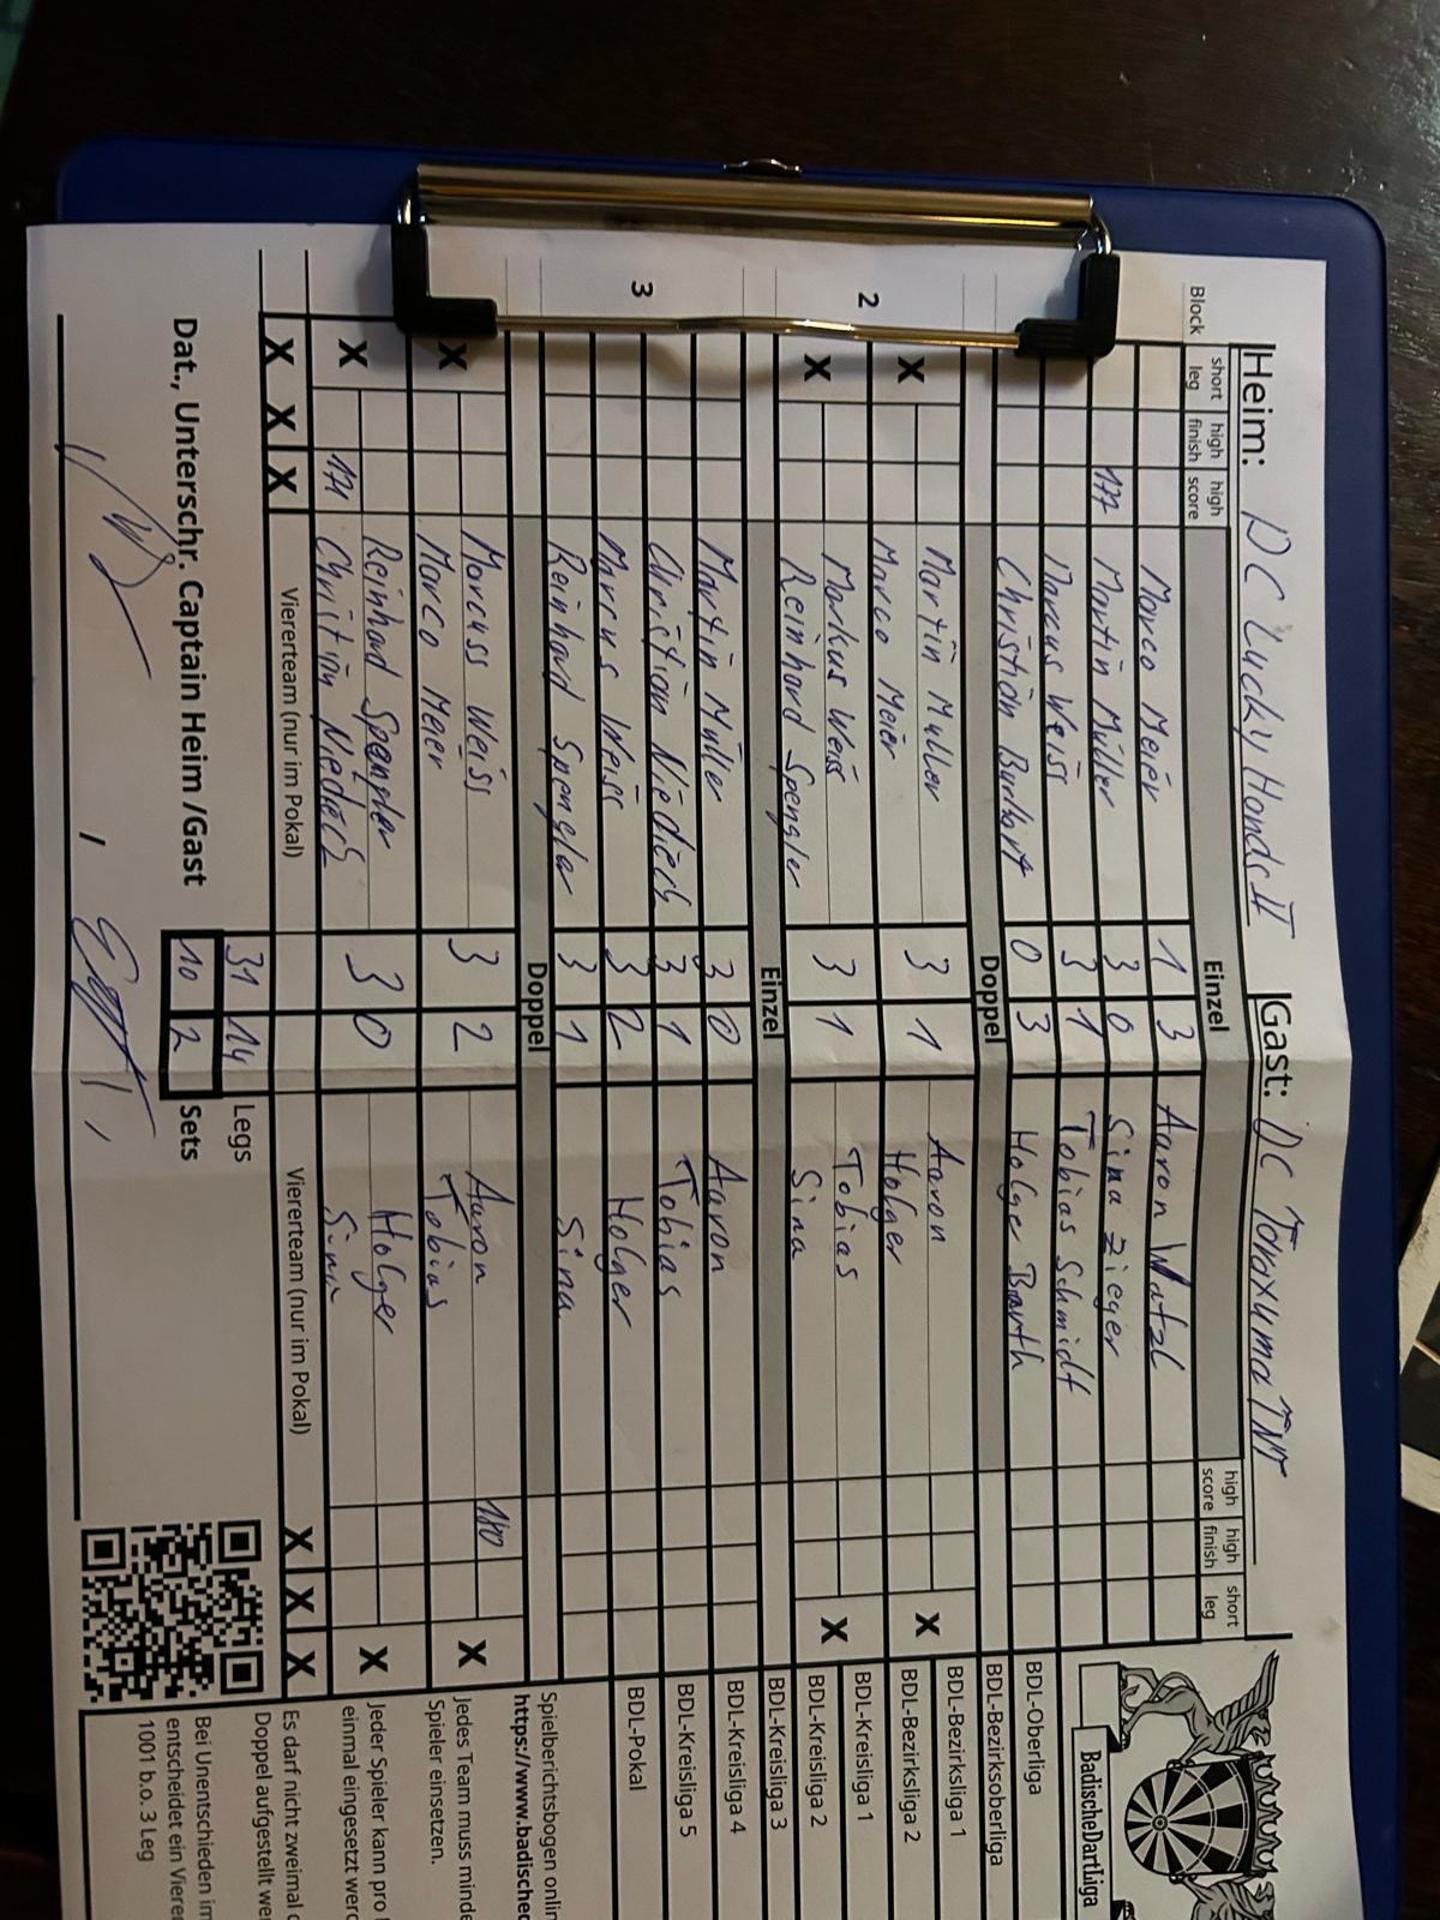 Heim: DC Lucky Hands II Gast: DC Toraxuma TNT
Block short leg high finish high score Einzel high score high finish short leg
Marco Meier 1 3 Aaron Watzl
177 Martin Müller 3 0 Sina Zieger
Marcus Weiss 3 1 Tobias Schmidt
Christian Burkart 0 3 Holger Barth
Doppel
2
X Martin Muller 3 1 Aaron X
Marco Meier Holger
X Markus Weiss 3 1 Tobias X
Reinhard Spengler Sina
Einzel
3
Martin Müller 3 0 Aaron
Christian Niederb 3 1 Tobias
Marcus Weiss 3 2 Holger
Reinhard Spengler 3 1 Sina
Doppel
X Marcuss Weiss 3 2 Aaron 180 X
Marco Meier Tobias
X Reinhad Spengler 3 0 Holger X
171 Christian Sina
X X X Viererteam (nur im Pokal) Viererteam (nur im Pokal) X X X
31 14 Legs
Dat., Unterschr. Captain Heim /Gast 10 2 Sets
/
BadischeDartLiga
BDL-Oberliga
BDL-Bezirksoberliga
BDL-Bezirksliga 1
BDL-Bezirksliga 2
BDL-Kreisliga 1
BDL-Kreisliga 2
BDL-Kreisliga 3
BDL-Kreisliga 4
BDL-Kreisliga 5
BDL-Pokal
Spielberichtsbogen onlin
https://www.badisched
Jedes Team muss minde
Spieler einsetzen.
Jeder Spieler kann pro
einmal eingesetzt werd
Es darf nicht zweimal d
Doppel aufgestellt wer
Bei Unentschieden im
entscheidet ein Vierer
1001 b.o. 3 Leg